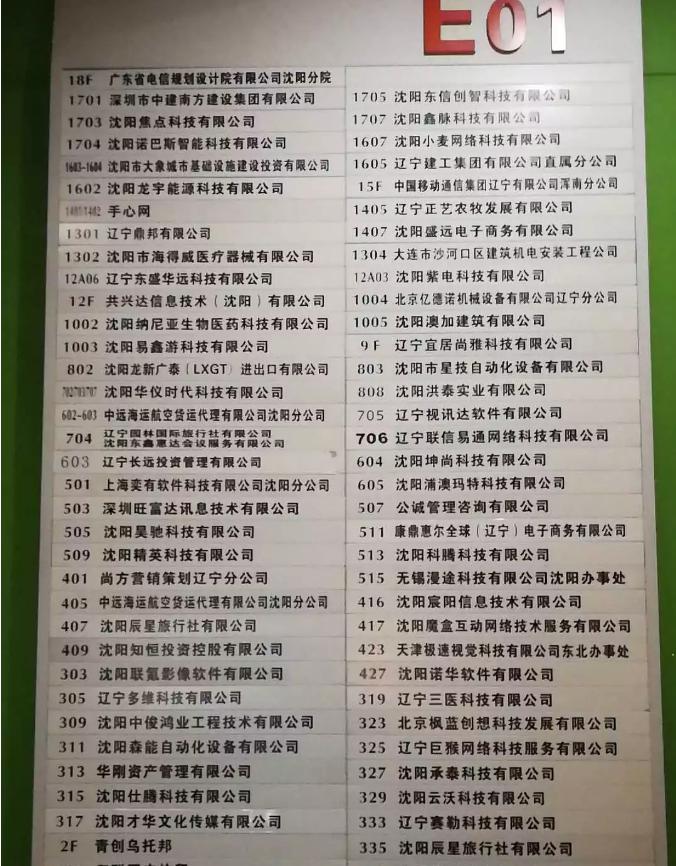 E01
18F 广东省电信规划设计院有限公司沈阳分院
1701 深圳市中建南方建设集团有限公司
1703 沈阳焦点科技有限公司
1704 沈阳诺巴斯智能科技有限公司
1603-1604 沈阳市大象城市基础设施建设投资有限公司
1602 沈阳龙宇能源科技有限公司
手心网
1301 辽宁鼎邦有限公司
1302 沈阳市海得威医疗器械有限公司
12A06 辽宁东盛华远科技有限公司
12F 共兴达信息技术（沈阳）有限公司
1002 沈阳纳尼亚生物医药科技有限公司
1003 沈阳易鑫游科技有限公司
802 沈阳龙新广泰（LXGT）进出口有限公司
702703707 沈阳华仪时代科技有限公司
602-603 中远海运航空货运代理有限公司沈阳分公司
704 辽宁园林国际旅行社有限公司
沈阳东鑫惠达会议服务有限公司
603 辽宁长远投资管理有限公司
501 上海奕有软件科技有限公司沈阳分公司
503 深圳旺富达讯息技术有限公司
505 沈阳昊驰科技有限公司
509 沈阳精英科技有限公司
401 尚方营销策划辽宁分公司
405 中远海运航空货运代理有限公司沈阳分公司
407 沈阳辰星旅行社有限公司
409 沈阳知恒投资控股有限公司
303 沈阳联氪影像软件有限公司
305 辽宁多维科技有限公司
309 沈阳中俊鸿业工程技术有限公司
311 沈阳森能自动化设备有限公司
313 华刚资产管理有限公司
315 沈阳仕腾科技有限公司
317 沈阳才华文化传媒有限公司
2F 青创乌托邦
1705 沈阳东信创智科技有限公司
1707 沈阳鑫脉科技有限公司
1607 沈阳小麦网络科技有限公司
1605 辽宁建工集团有限公司直属分公司
15F 中国移动通信集团辽宁有限公司浑南分公司
1405 辽宁正艺农牧发展有限公司
1407 沈阳盛远电子商务有限公司
1304 大连市沙河口区建筑机电安装工程公司
12A03 沈阳紫电科技有限公司
1004 北京亿德诺机械设备有限公司辽宁分公司
1005 沈阳澳加建筑有限公司
9F 辽宁宜居尚雅科技有限公司
803 沈阳市星技自动化设备有限公司
808 沈阳洪泰实业有限公司
705 辽宁视讯达软件有限公司
706 辽宁联信易通网络科技有限公司
604 沈阳坤尚科技有限公司
605 沈阳浦澳玛特科技有限公司
507 公诚管理咨询有限公司
511 康鼎惠尔全球（辽宁）电子商务有限公司
513 沈阳科腾科技有限公司
515 无锡漫途科技有限公司沈阳办事处
416 沈阳宸阳信息技术有限公司
417 沈阳魔盒互动网络技术服务有限公司
423 天津极速视觉科技有限公司东北办事处
427 沈阳诺华软件有限公司
319 辽宁三医科技有限公司
323 北京枫蓝创想科技发展有限公司
325 辽宁巨猴网络科技服务有限公司
327 沈阳承泰科技有限公司
329 沈阳云沃科技有限公司
333 辽宁赛勒科技有限公司
335 沈阳辰星旅行社有限公司